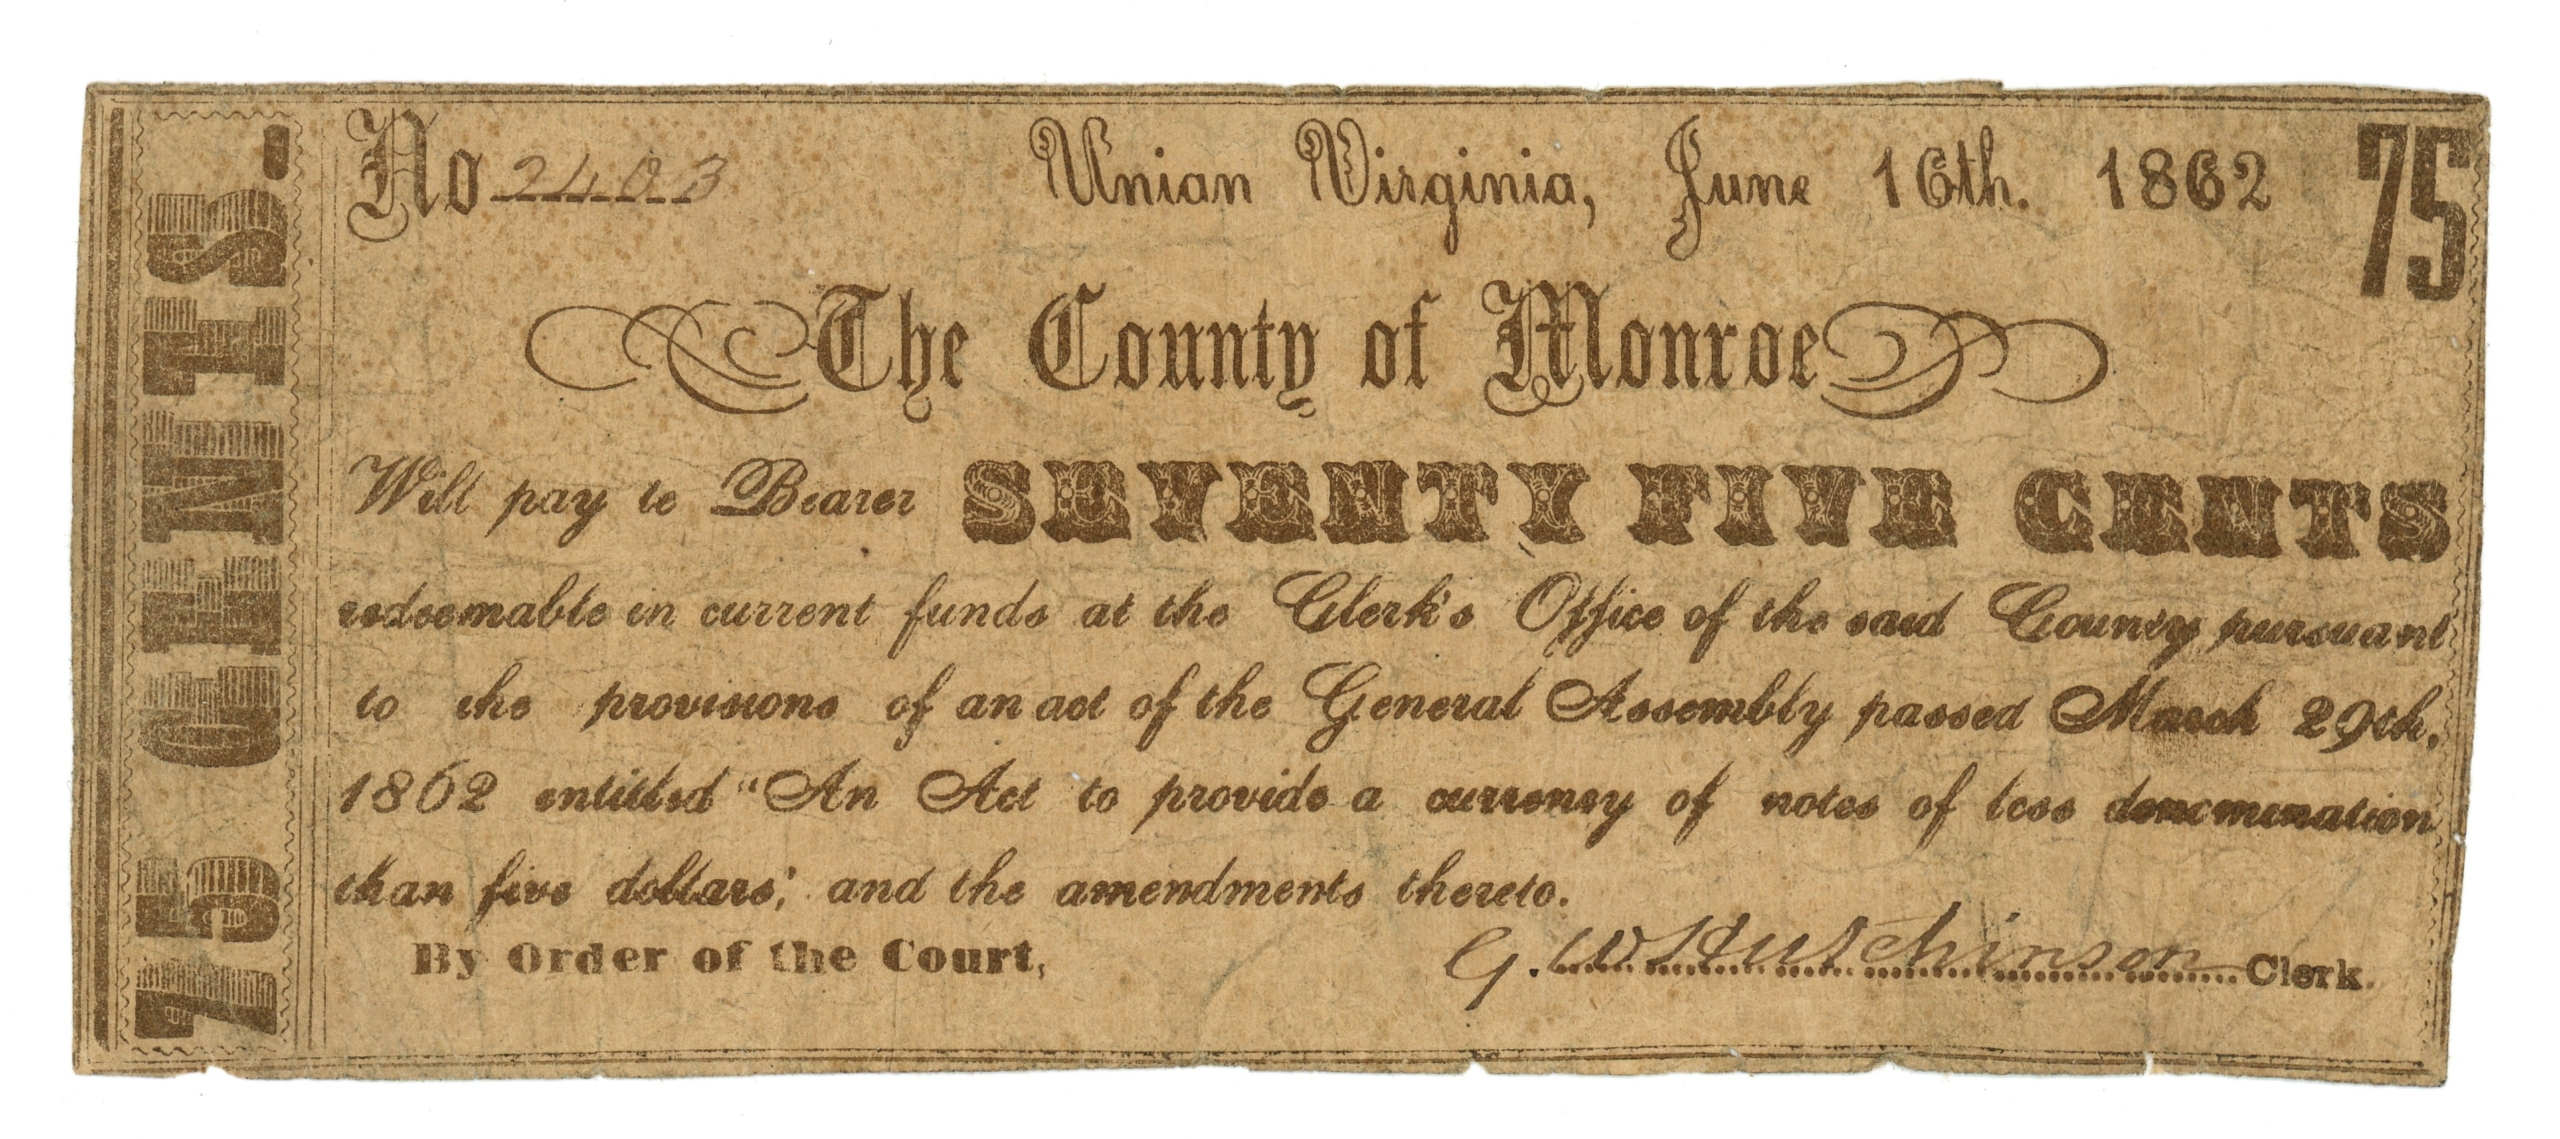 75 CENTS.
No 2403 Union Virginia, June 16th. 1862 75
The County of Monroe
Will pay to Bearer SEVENTY FIVE CENTS
redeemable in current funds at the Clerk's Office of the said County pursuant
to the provisions of an act of the General Assembly passed March 29th,
1862 entitled "An Act to provide a currency of notes of less denomination
than five dollars,' and the amendments thereto.
By Order of the Court, G. W. Hutchinson Clerk.